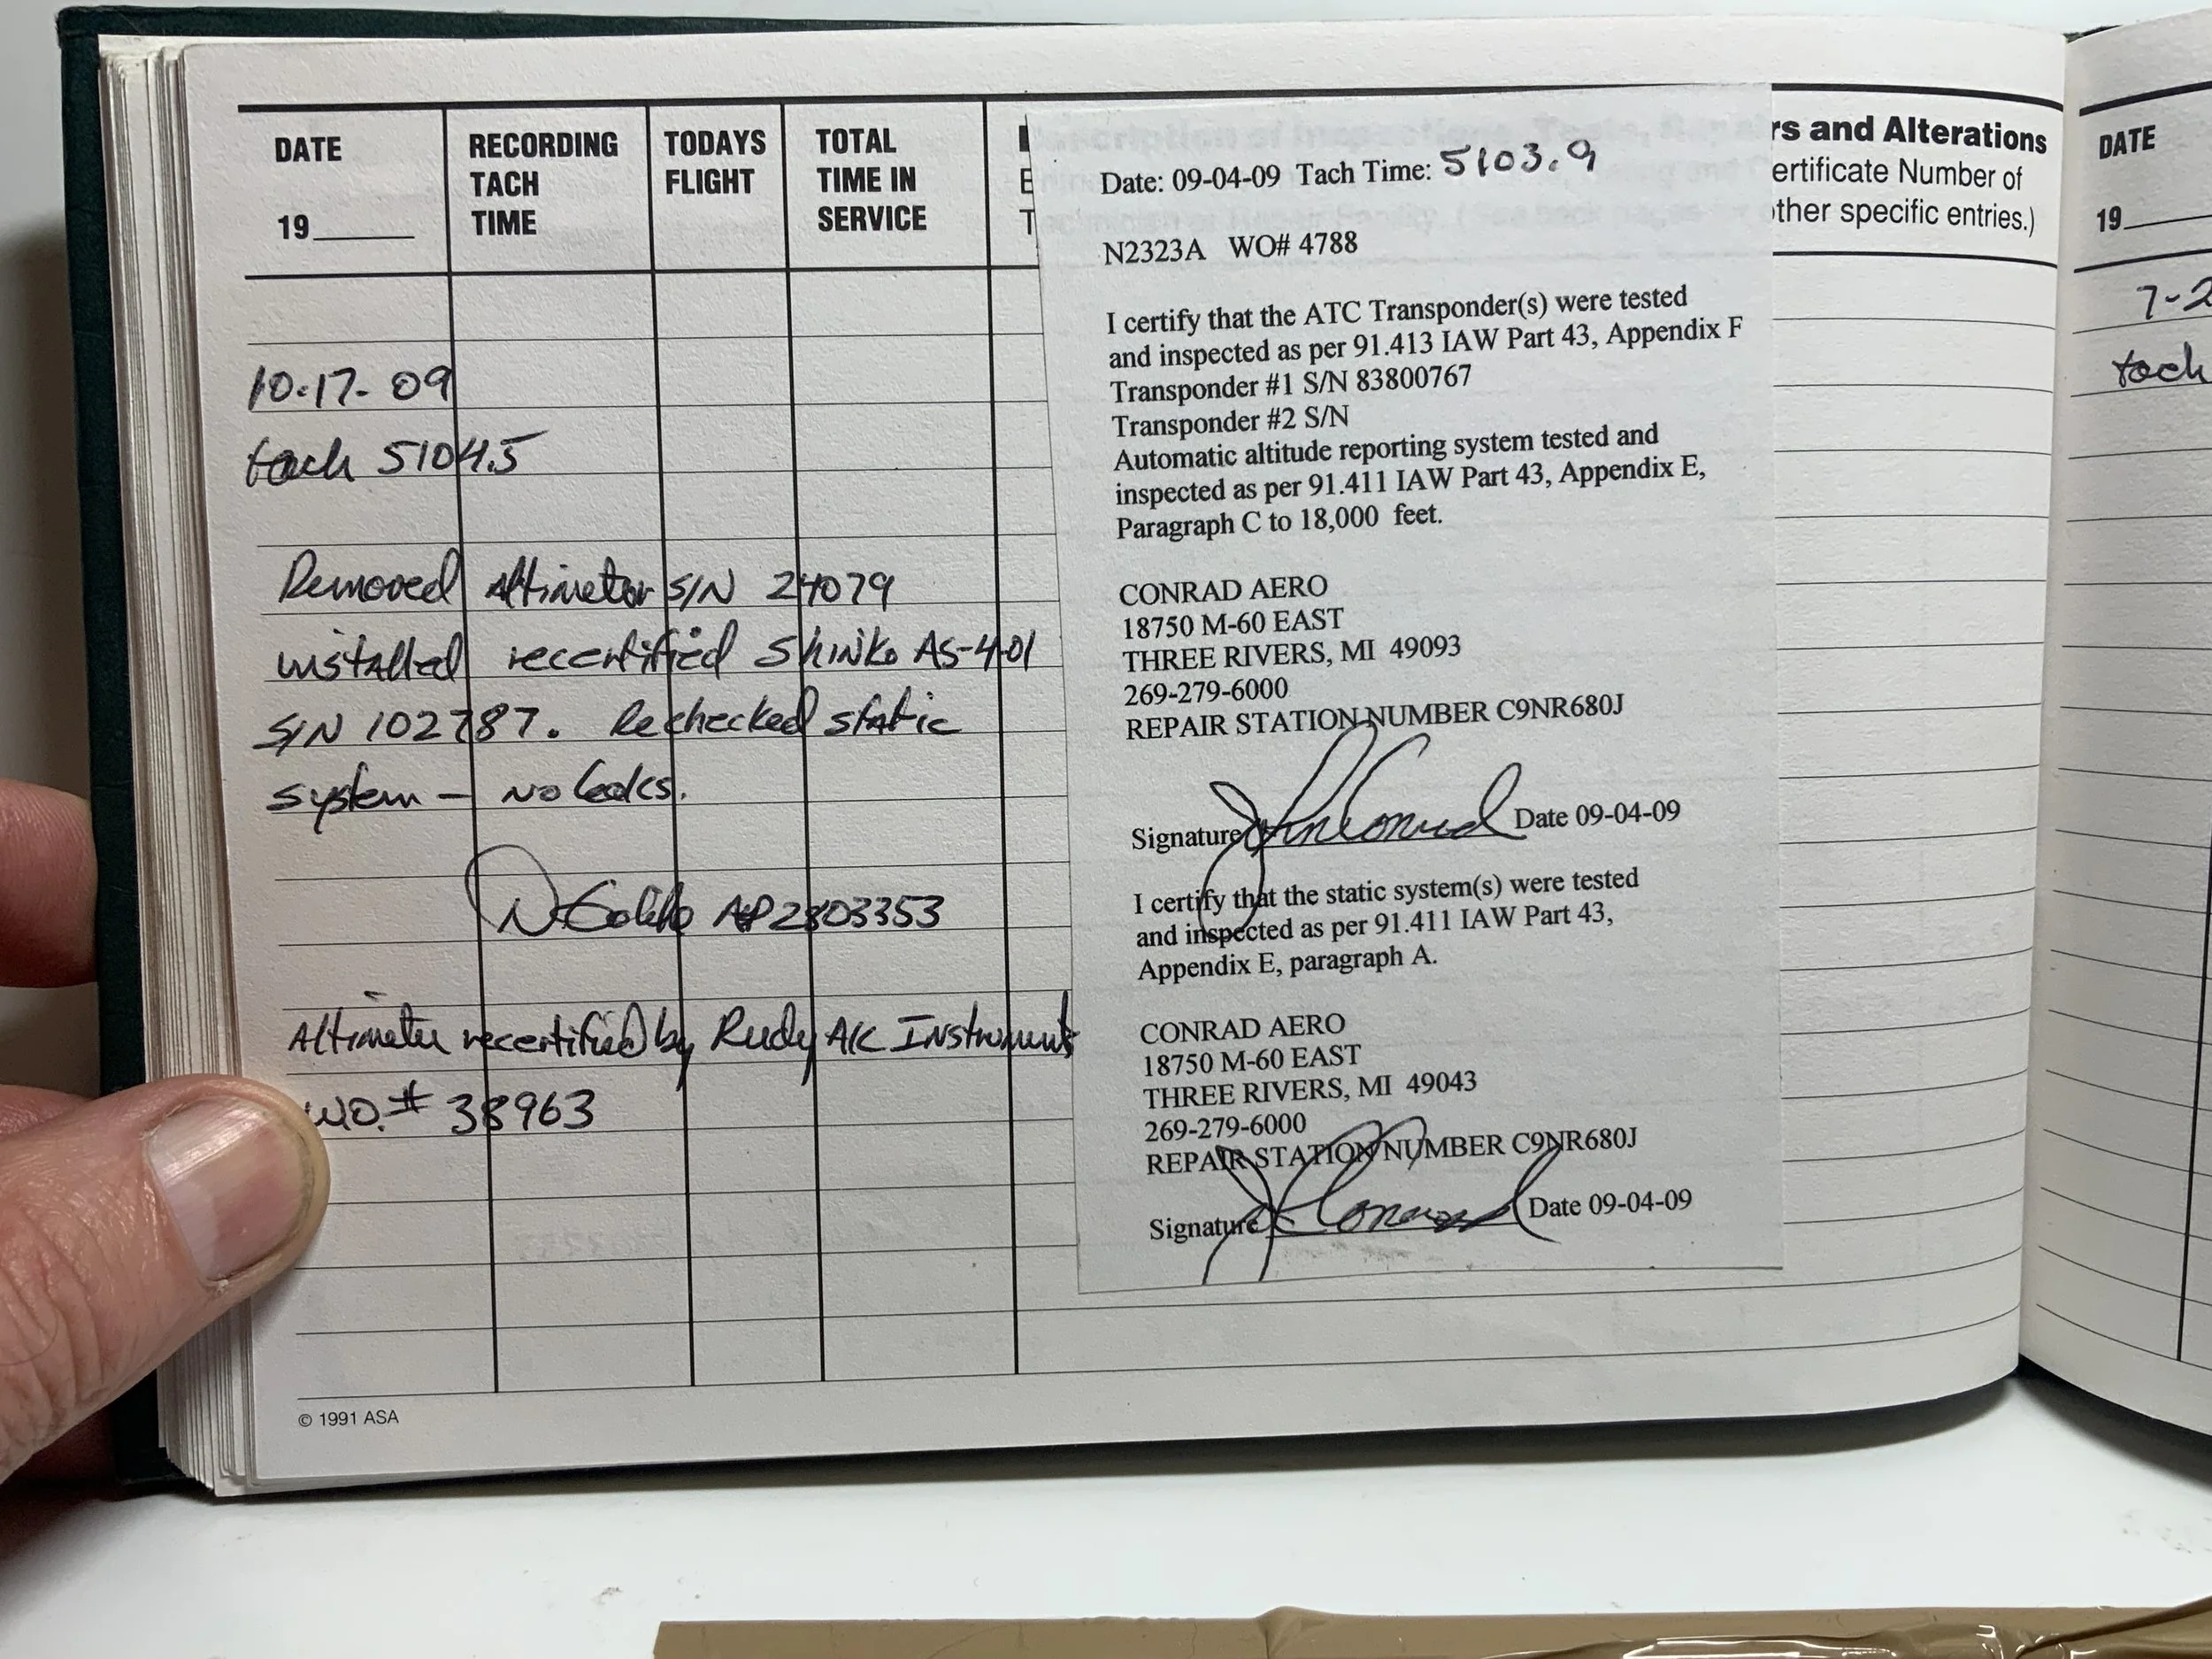 DATE
19____
RECORDING
TACH
TIME
TODAYS
FLIGHT
TOTAL
TIME IN
SERVICE
E
T
rs and Alterations
ertificate Number of
ther specific entries.)
10-17-09
tach 5104.5
Removed Altimeter S/N 24079
installed recertified Shinko AS-4-01
S/N 102787. Rechecked static
system — no leaks.
AP2803353
Altimeter recertified by Rudy A/C Instrument
W.O.# 38963
© 1991 ASA
Date: 09-04-09 Tach Time: 5103.9
N2323A WO# 4788
I certify that the ATC Transponder(s) were tested
and inspected as per 91.413 IAW Part 43, Appendix F
Transponder #1 S/N 83800767
Transponder #2 S/N
Automatic altitude reporting system tested and
inspected as per 91.411 IAW Part 43, Appendix E,
Paragraph C to 18,000 feet.
CONRAD AERO
18750 M-60 EAST
THREE RIVERS, MI 49093
269-279-6000
REPAIR STATION NUMBER C9NR680J
Signature John Conrad Date 09-04-09
I certify that the static system(s) were tested
and inspected as per 91.411 IAW Part 43,
Appendix E, paragraph A.
CONRAD AERO
18750 M-60 EAST
THREE RIVERS, MI 49043
269-279-6000
REPAIR STATION NUMBER C9NR680J
Signature J Conrad Date 09-04-09
DATE
19
7-2
tach